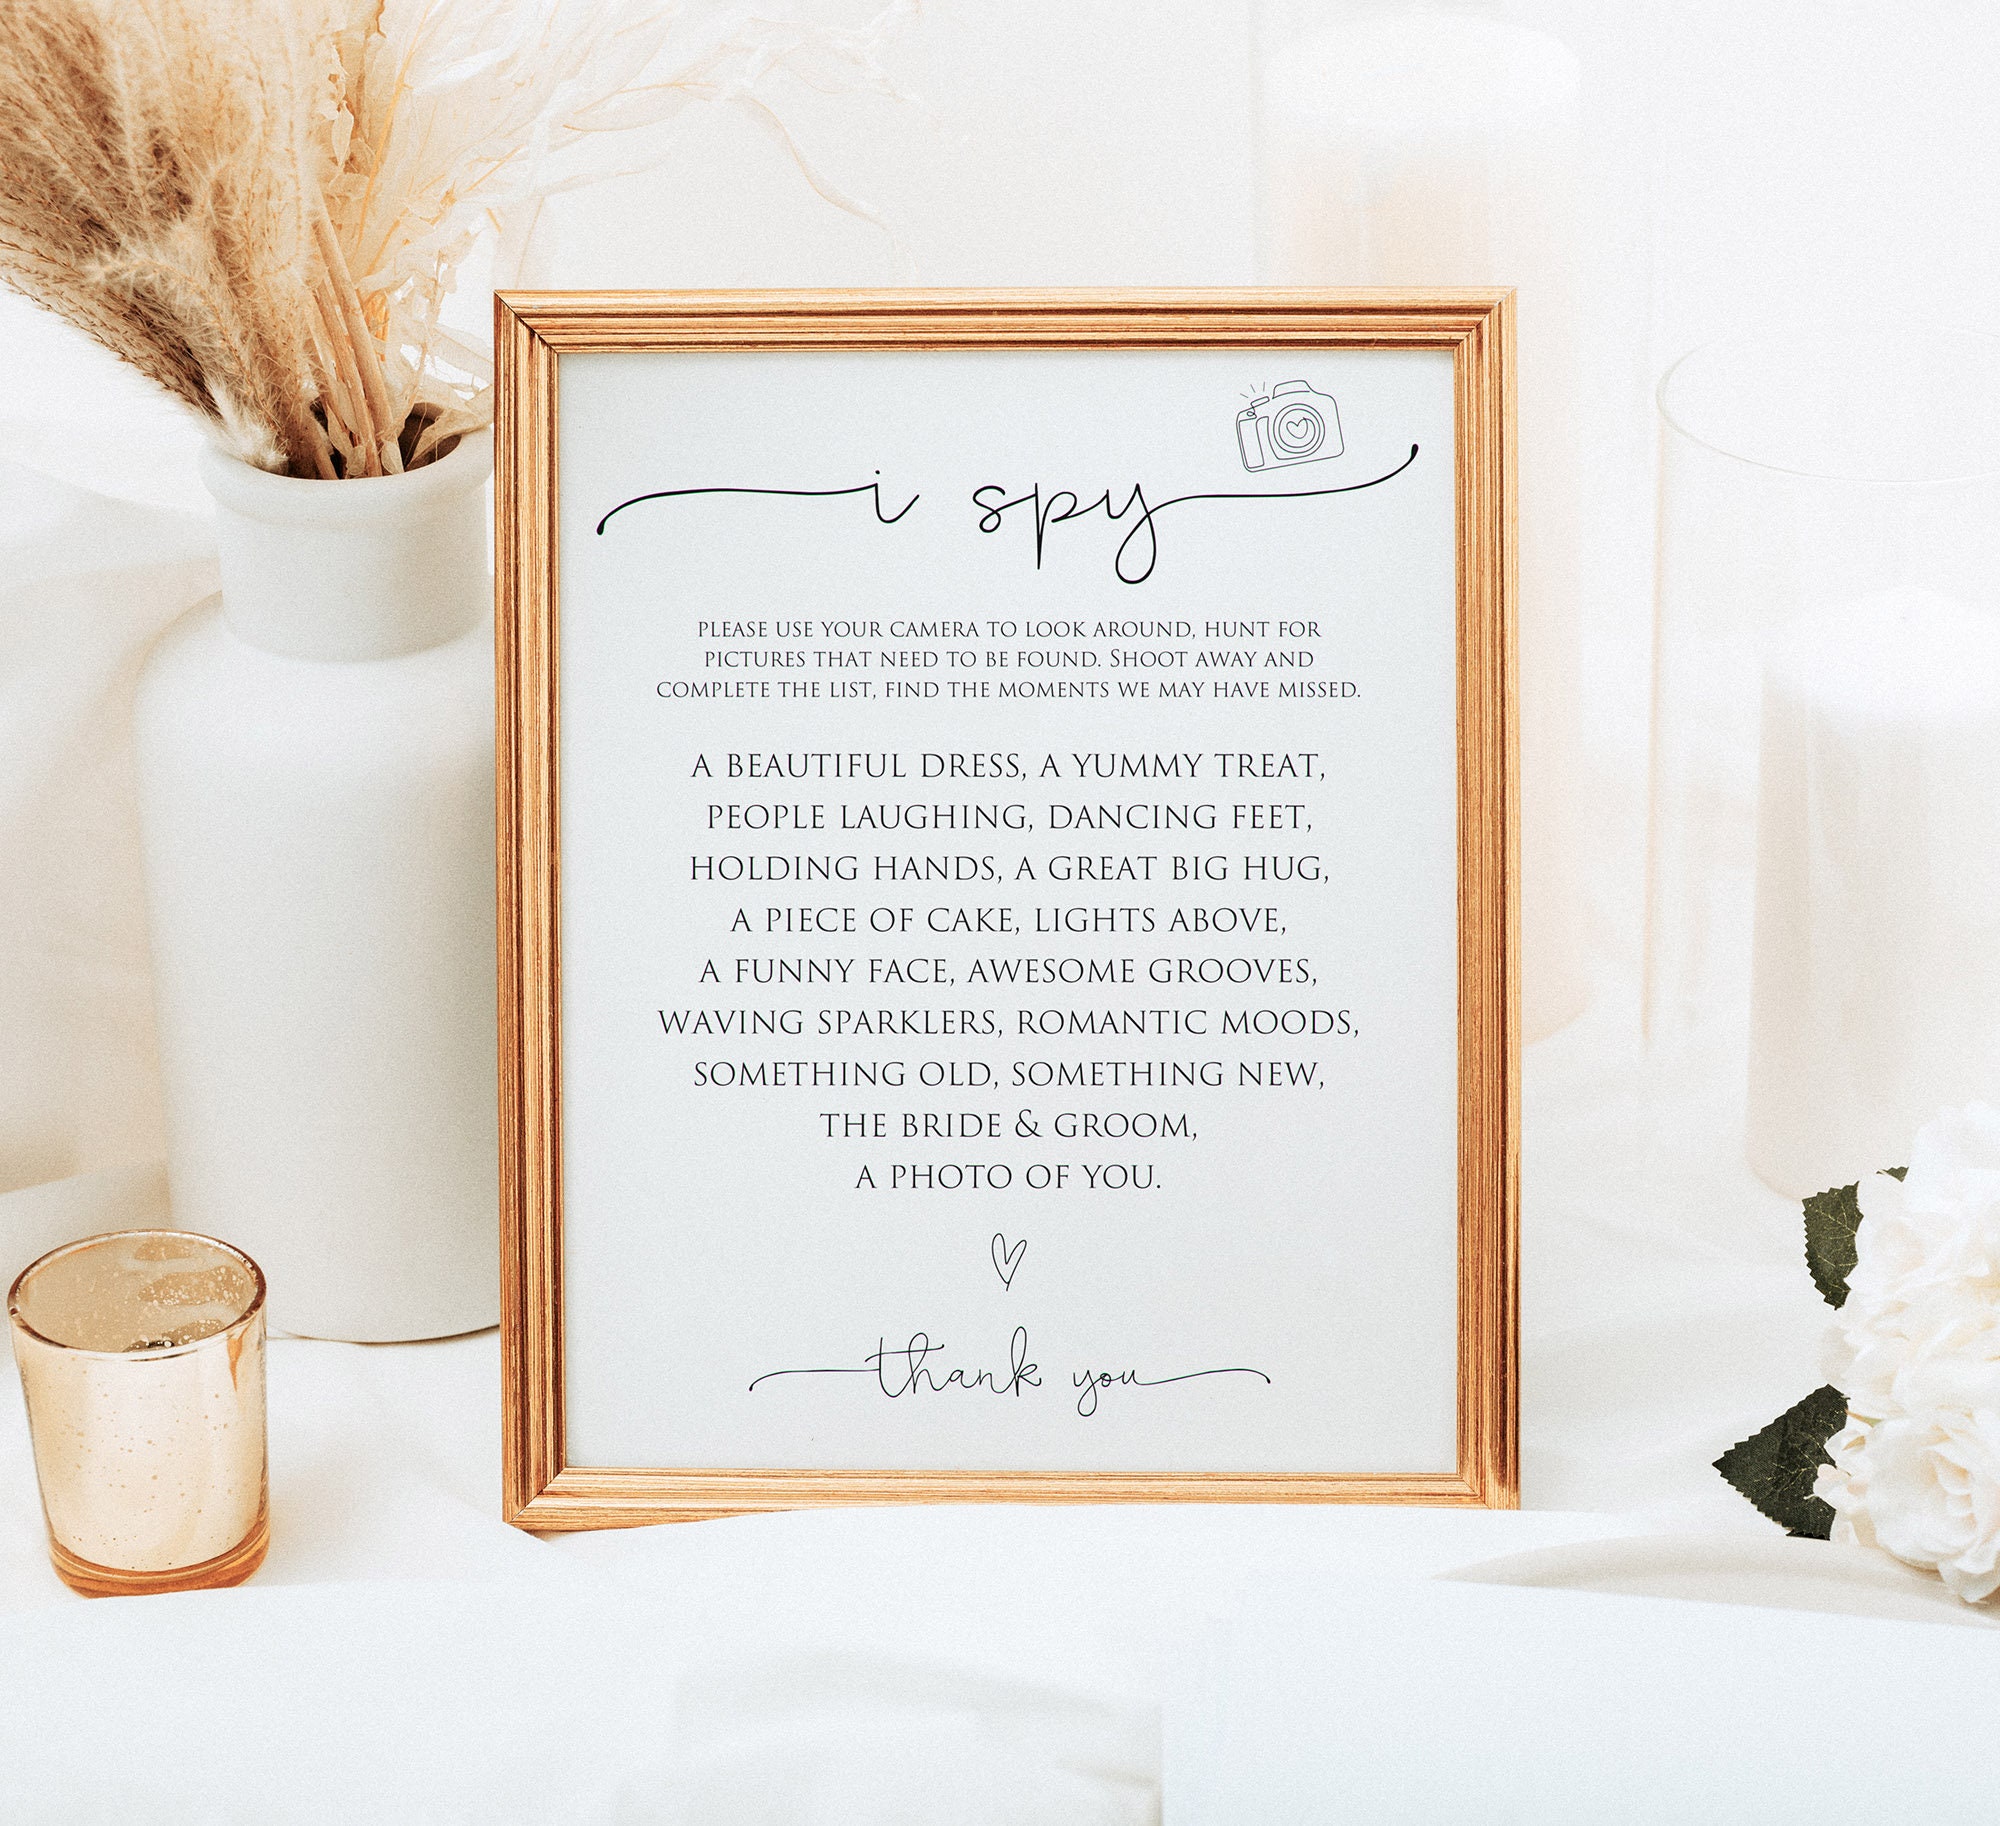 i spy
PLEASE USE YOUR CAMERA TO LOOK AROUND, HUNT FOR
PICTURES THAT NEED TO BE FOUND. SHOOT AWAY AND
COMPLETE THE LIST, FIND THE MOMENTS WE MAY HAVE MISSED.
A BEAUTIFUL DRESS, A YUMMY TREAT,
PEOPLE LAUGHING, DANCING FEET,
HOLDING HANDS, A GREAT BIG HUG,
A PIECE OF CAKE, LIGHTS ABOVE,
A FUNNY FACE, AWESOME GROOVES,
WAVING SPARKLERS, ROMANTIC MOODS,
SOMETHING OLD, SOMETHING NEW,
THE BRIDE & GROOM,
A PHOTO OF YOU.
thank you